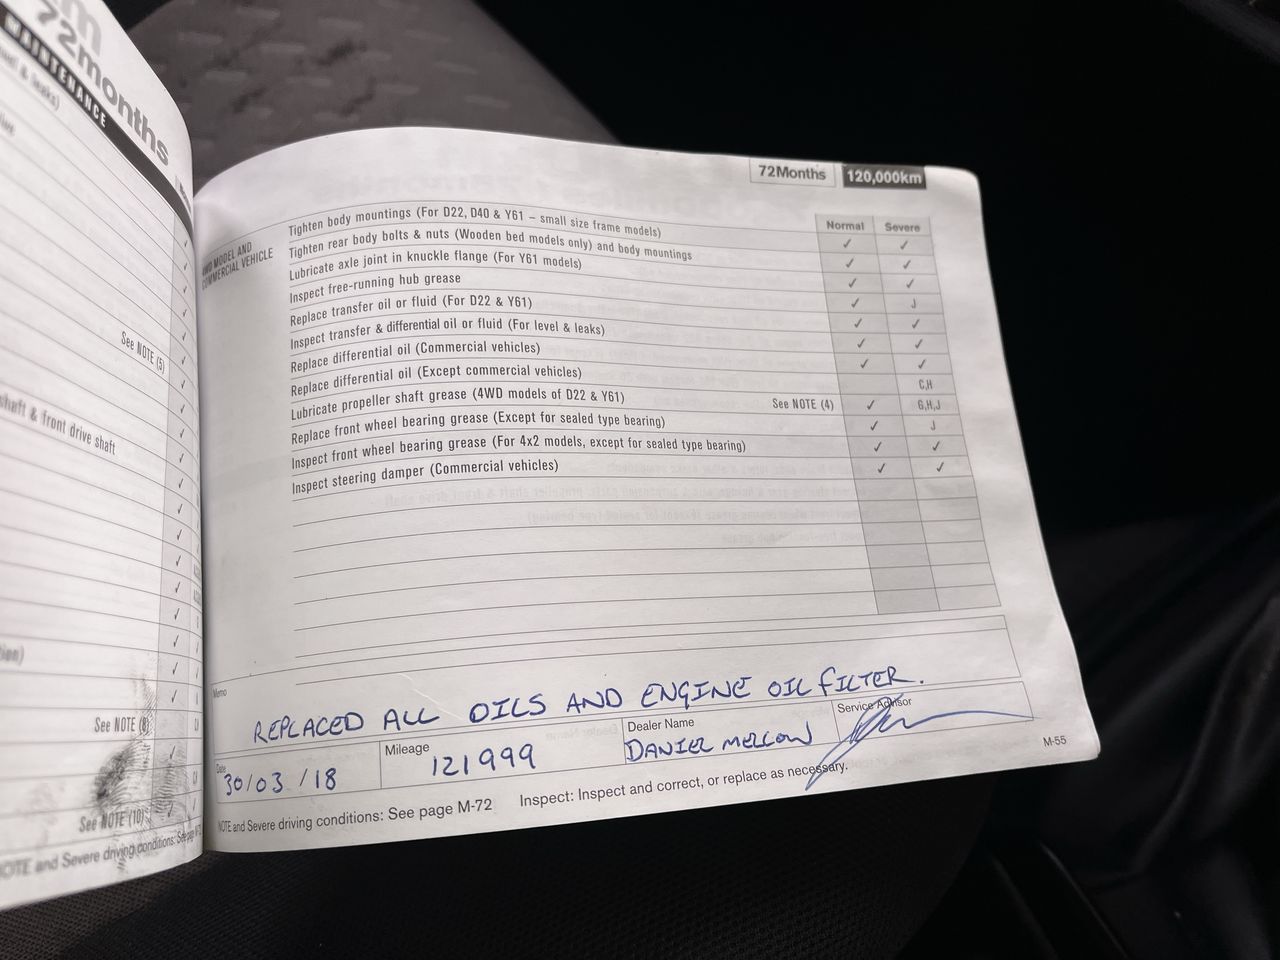 72months
MAINTENANCE
& leaks)
See NOTE (5)
shaft & front drive shaft
See NOTE (8)
See NOTE (10)
NOTE and Severe driving conditions: See page
72Months 120,000km
Normal Severe
4WD MODEL AND
COMMERCIAL VEHICLE
Tighten body mountings (For D22, D40 & Y61 – small size frame models) ✓ ✓
Tighten rear body bolts & nuts (Wooden bed models only) and body mountings ✓ ✓
Lubricate axle joint in knuckle flange (For Y61 models) ✓ ✓
Inspect free-running hub grease ✓ J
Replace transfer oil or fluid (For D22 & Y61) ✓ ✓
Inspect transfer & differential oil or fluid (For level & leaks) ✓ ✓
Replace differential oil (Commercial vehicles) ✓ ✓
Replace differential oil (Except commercial vehicles) C,H
Lubricate propeller shaft grease (4WD models of D22 & Y61) See NOTE (4) ✓ G,H,J
Replace front wheel bearing grease (Except for sealed type bearing) ✓ J
Inspect front wheel bearing grease (For 4x2 models, except for sealed type bearing) ✓ ✓
Inspect steering damper (Commercial vehicles) ✓ ✓
Memo
REPLACED ALL OILS AND ENGINE OIL FILTER.
Date Mileage Dealer Name Service Advisor
30/03/18 121999 DANIEL MELLOW
NOTE and Severe driving conditions: See page M-72 Inspect: Inspect and correct, or replace as necessary.
M-55